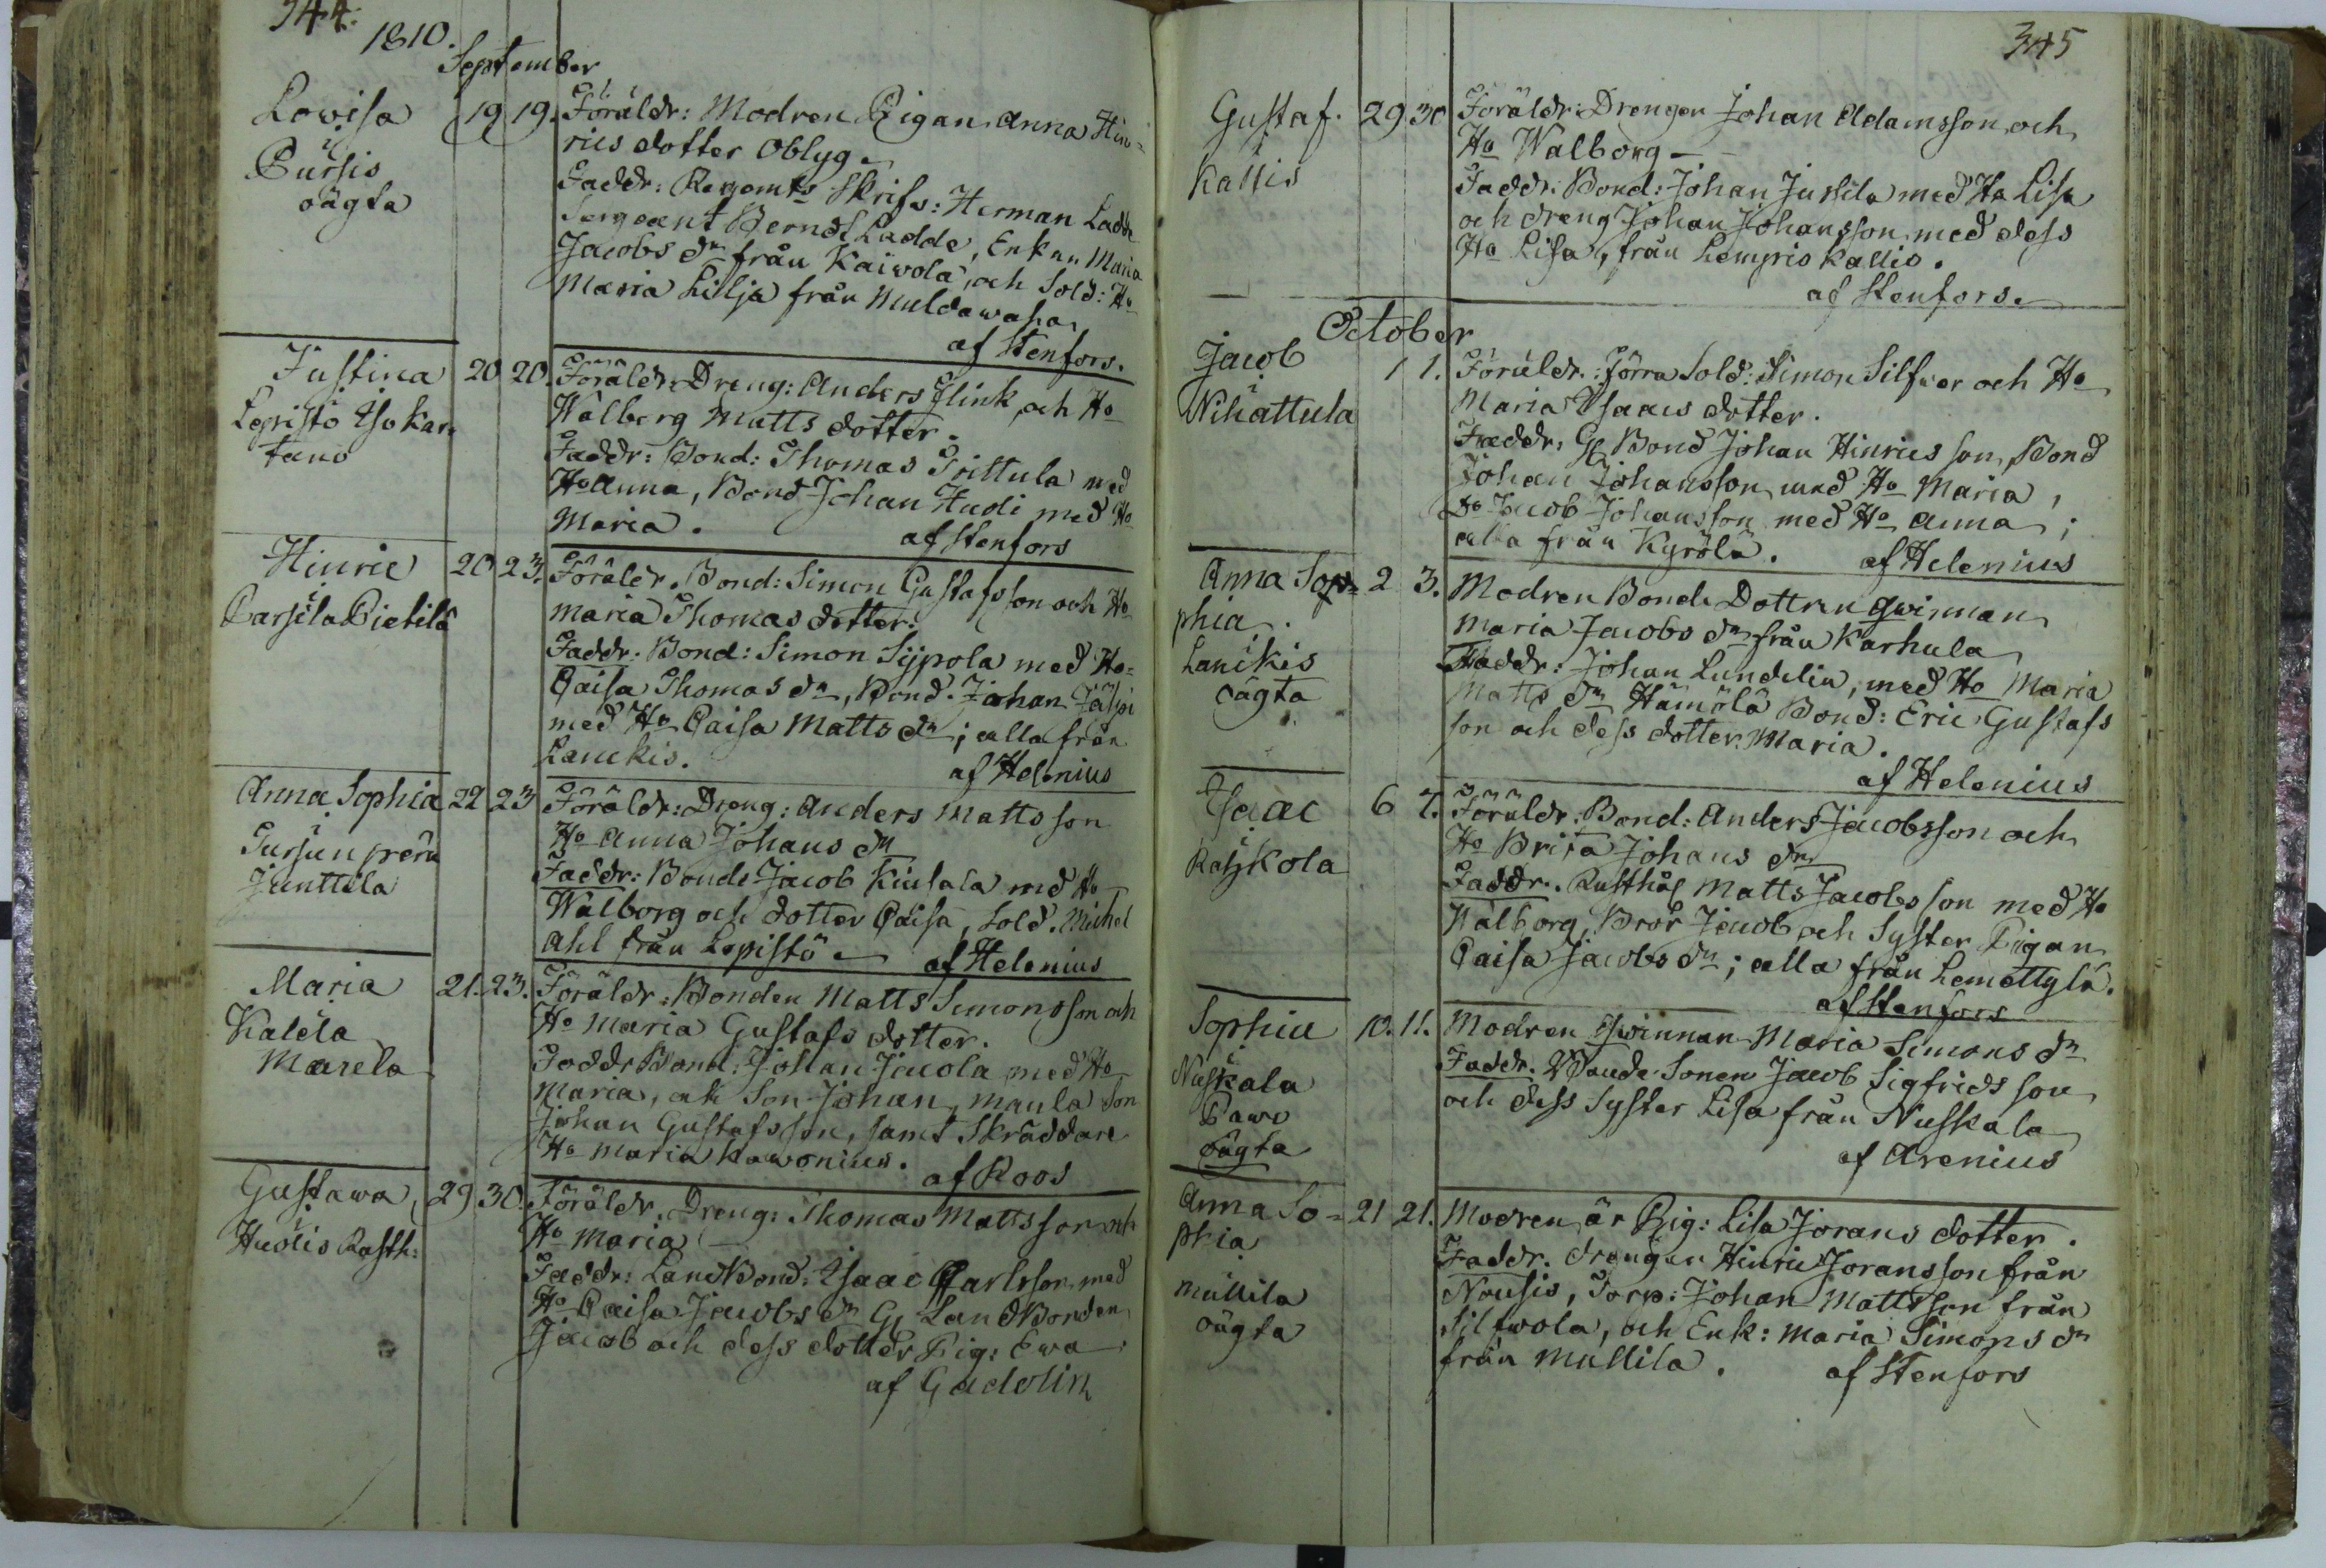 344.
1810.
September
Lowisa 19 19. Föräldr: Modren Pigan Anna Hin=
i Pursis rics dotter Oblyg.
oägta Faddr: Regemts Skrifv: Herman Ladde
Sergeant Berndt Ladde, Enkan Maria
Jacobs dr från Kaiwola, och Sold: Ho
Maria Lilja från Muldawaha
af Stenfors.
Justina 20 20. Föräldr. Dreng: Anders Flink och Ho
Lepistö Iso kar= Walborg Matts dotter.
tano Faddr: Bond: Thomas Prittula med
Ho Anna, Bond Johan Hudi med Ho
Maria. af Stenfors
Hinric 20 23. Föräldr. Bond: Simon Gustafsson och Ho
i Parsila Pietilä Maria Thomas dotter.
Faddr. Bond: Simon Sijpola med Ho=
Caisa Thomas dr, Bond. Johan Jäspi
med Ho Caisa Matts dr; alla från
Lanckis.
af Helenius
Anna Sophia 22 23 Föräldr: Dreng: Anders Matts son
Ho Anna Johans dr
Junttila Faddr: Bonde Jacob Kiusala med Ho
Walborg och dotter Caisa, Sold. Michel
Ahl från Lepistö af Helenius
Maria 21. 23. Föräldr. Bonden Matts Simonsson och
Kalela Ho Maria Gustafs dotter.
Marela Faddr Bond: Johan Jacola med Ho
Maria, och Son Johan, Maula Son
Johan Gustafsson, samt Skräddare
Ho Maria Kawonius. af Roos
Gustawa, 29 30. Föräldr. Dreng: Thomas Mattsson och
Huolis Rusth: Ho Maria
Faddr: LandBond: Isaac Carlsson med
Ho Caisa Jacobs dr G LandBonden
Jacob och dess dotter Pig: Ewa
af Gadolin
345
Gustaf. 29. 30 Föräldr: Drengen Johan Adamsson och
Kallis Ho Walborg
Faddr: Bond: Johan Jussila med Ho Lisa
och dreng Johan Johansson med dess
Ho Lisa, från Lempris Kallis.
af Stenfors.
October
Jacob 1 1. Föräldr. Förra Sold: Simon Silfver och Ho
Nihattula Maria Isaacs dotter.
Faddr. G Bond Johan Hinrics son, Bond
Johan Johansson med Ho Maria,
Do Jacob Johansson med Ho Anna;
alla från Kyrölä. af Helenius
Anna So= 2 3. Modren Bonde Dottren Qwinnan
phia Maria Jacobs dr från Karhula
Lanckis Faddr: Johan Lundelin, med Ho Maria
oägta Matts dr Hämölä Bond: Eric Gustafs
son och dess dotter Maria.
af Helenius
Isaac 6 7. Föräldr. Bond: Anders Jacobsson och
Raijkola Ho Brita Johans dr
Faddr. Rusthål Matts Jacobsson med Ho
Walborg, Bror Jacob och Syster Pigan
Caisa Jacobs dr; alla från Lemettylä.
af Stenfors
Sophia 10. 11. Modren Qwinnan Maria Simons dr
i Nuskala Faddr. Bonde Sonen Jacob Sigfrids son
Pawo och dess Syster Lisa från Nuskala
oägta af Arenius
Anna So= 21 21. Modren är Pig: Lisa Jörans dotter.
phia Faddr. drengen Hinric Jöransson från
Mullila Nousis, Torp: Johan Mattsson från
oägta Silfwola, och Enk: Maria Simons dr
från Mullila. af Stenfors